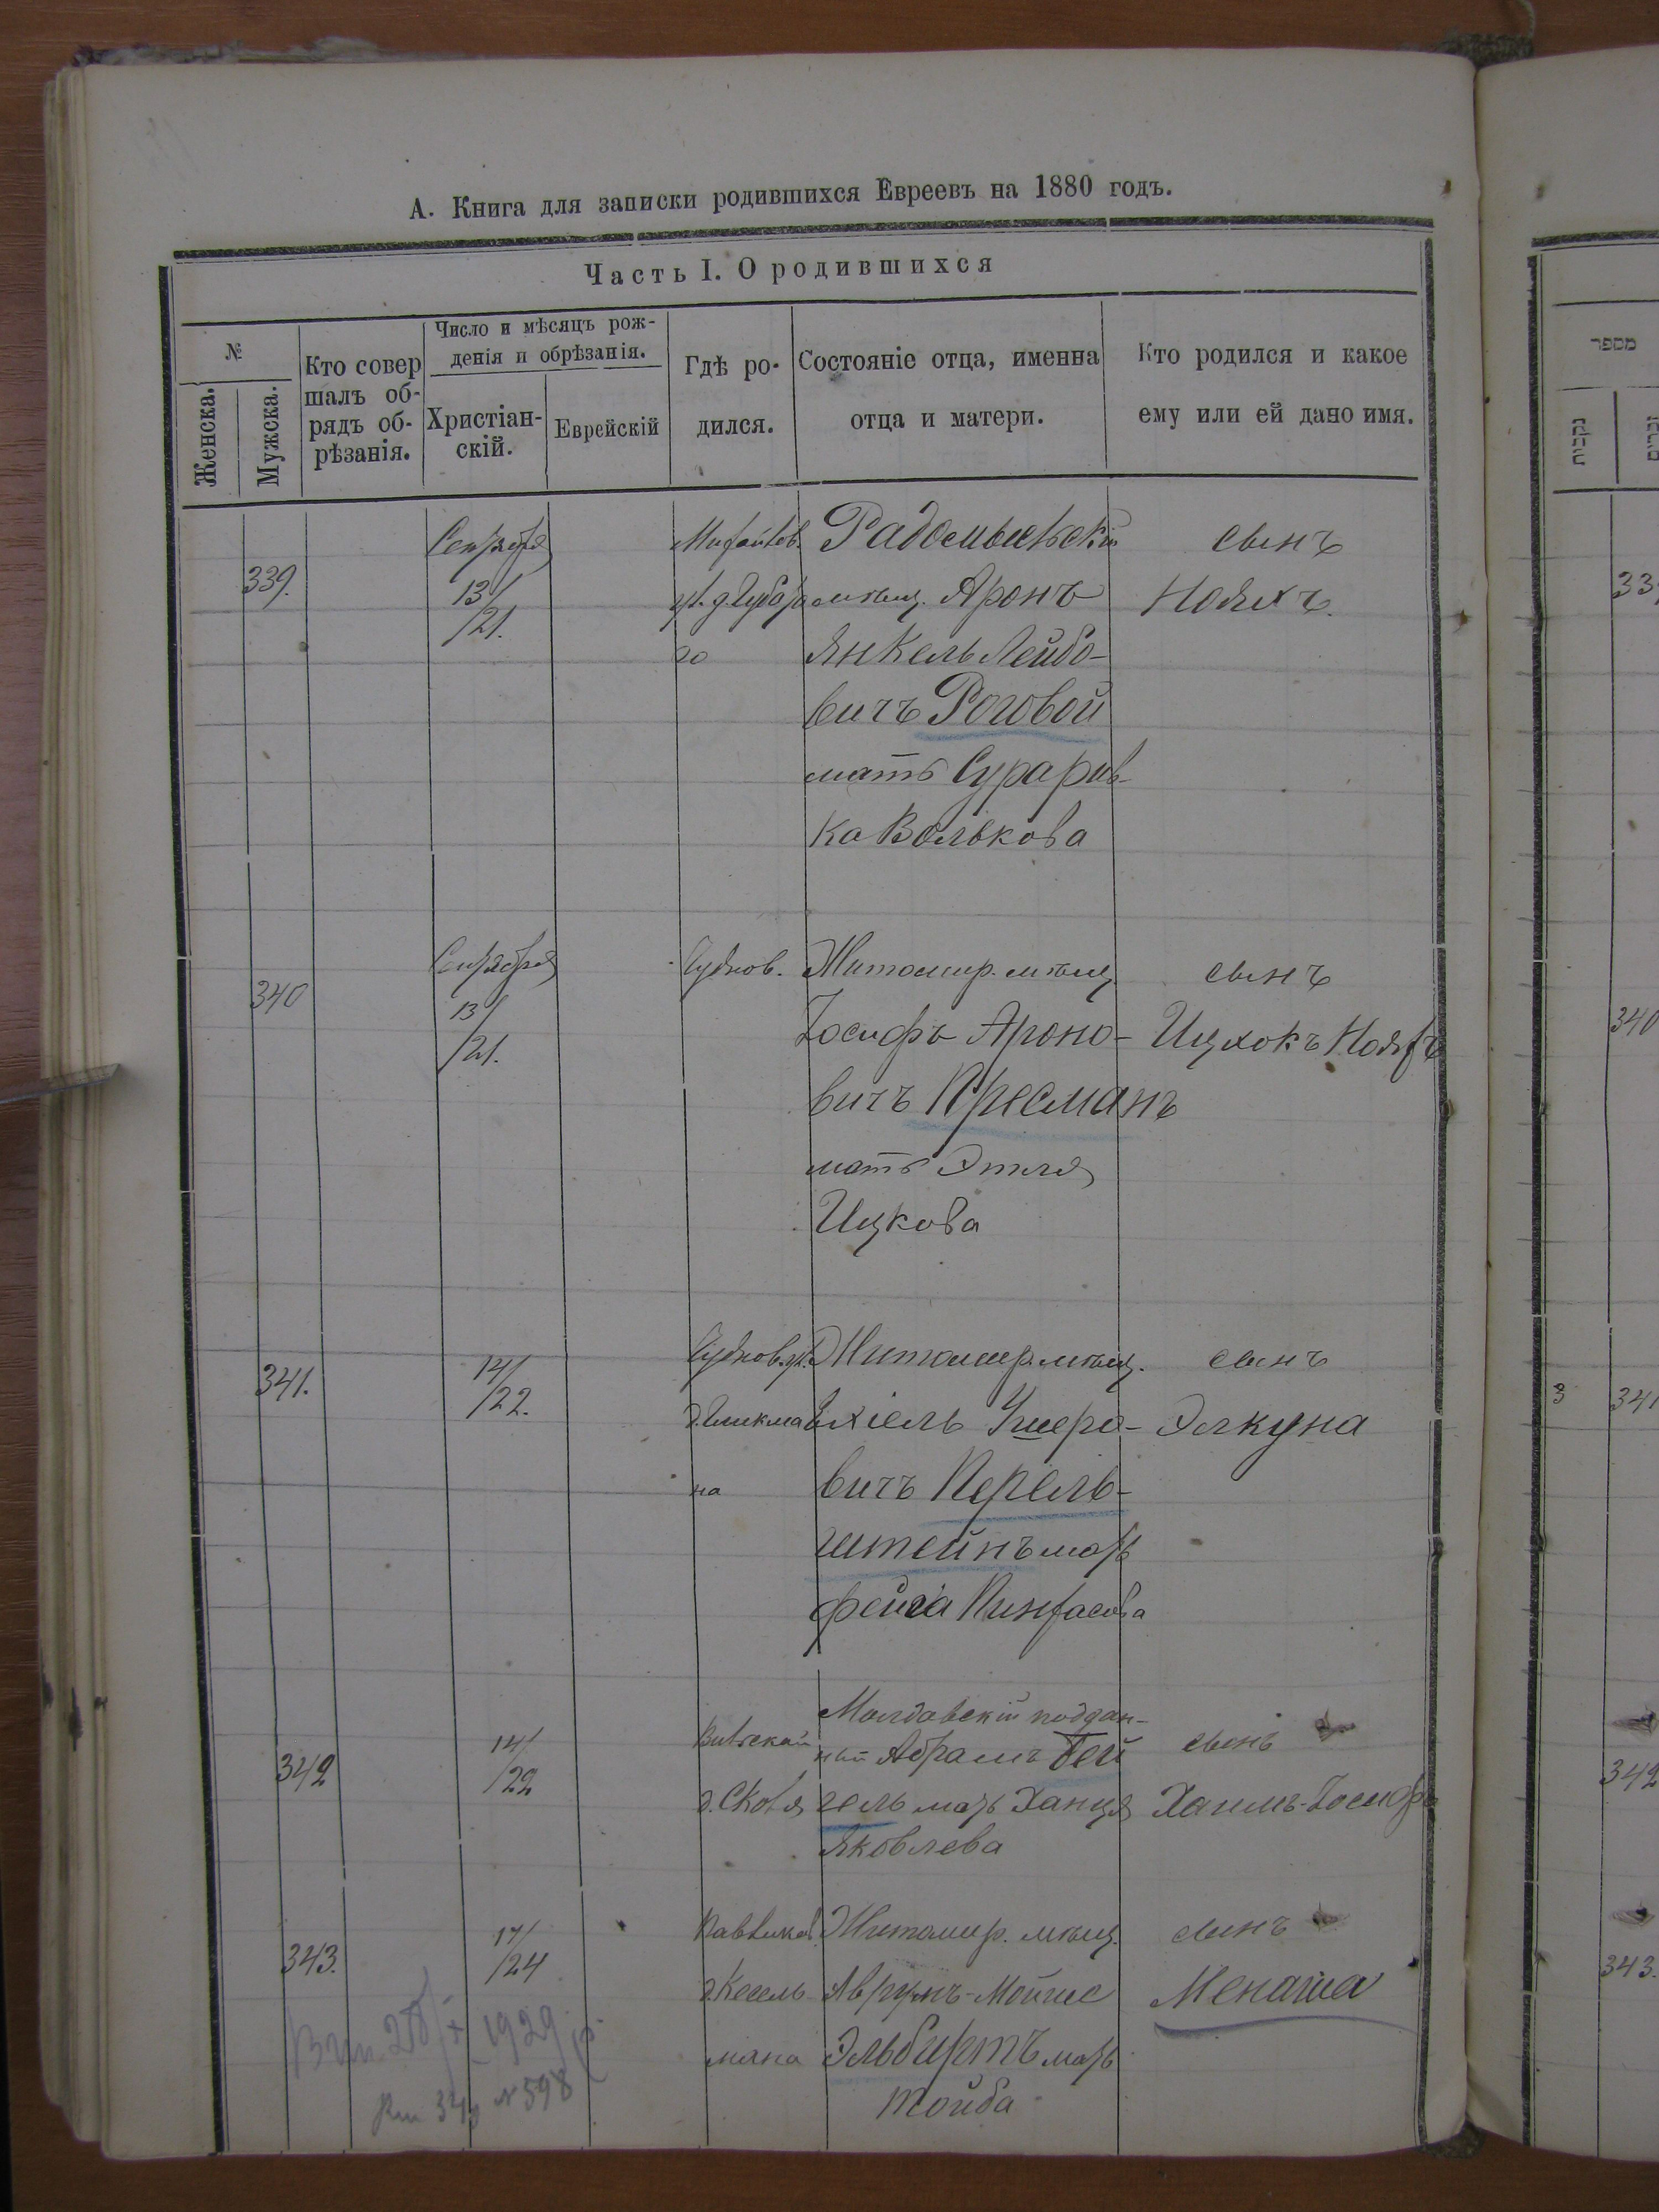 А. Книга для записки родившихся Евреевъ на 1880 годъ.
Часть I. О родившихся
№
Женска.
Мужска.
Кто совер
шалъ об-
рядъ об-
рѣзанія.
Число и мѣсяцъ рож-
денія и обрѣзанія.
Христіан-
скій.
Еврейскій
Гдѣ ро-
дился.
Состояніе отца, именна
отца и матери.
Кто родился и какое
ему или ей дано имя.
339.
Сентября
13/
/21.
го
Радомысльскій
мѣщ. Аронъ
Янкель Лейбо-
вичъ Роговой
мать Сура рив-
ка Волькова
сынъ
Нояхъ.
340
Сентября
13/
/21.
Чуднов.
Житомир. мѣщ
Іосифъ Ароно-
вичъ Кресманъ
мать Этля
Ицкова
сынъ
Ицхокъ Нояхъ
341.
14/
/22.
Чуднов. ул.
д. Гликма
на
Житомир. мѣщ.
Ехіель Ушеро-
вичъ Перель-
штейнъ мать
фейга Пинхасова
сынъ
Элкуна
342
14/
/22
Вильской
Молдавскій поддан-
ный Абрамъ Бей
гель мать Ханця
Яковлева
сынъ
Хаимъ-Іосифъ
343.
17/
/24
д. Кесель
мана
Житомир. мѣщ.
Аврумъ-Мойше
Эльбиртъ мать
Тойба
сынъ
Менаша
1929 р.
№ 598
מספר
נקבות
זכרים
339
340
3 341
342
343.